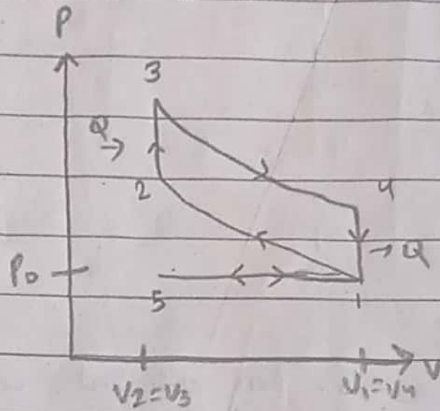 P
3
Q →
2
4
→ Q
P0
5
1
V2=V3
V1=V4
V